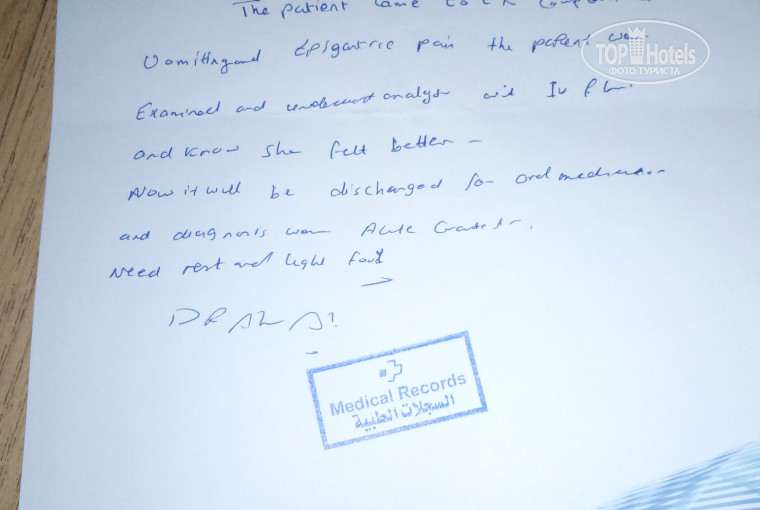 The patient came to ER
Vomiting and Epigastric pain the patient was
Examined and underwent analysis with IV
and know she felt better -
Now it will be discharged for oral medication
and diagnosis was Acute Gastritis.
Need rest and light food
DR
Medical Records
السجلات الطبية
TOP Hotels
ФОТО ТУРИСТА